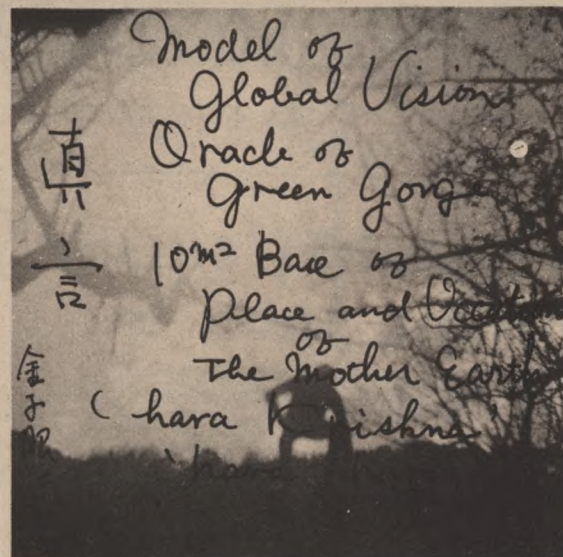 Model of
Global Vision
Oracle of
Green Gorge
10m² Base of
Place and
of
The Mother Earth
( hara Krishna
真言
金子